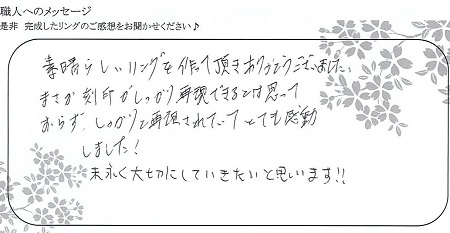 職人へのメッセージ
是非 完成したリングのご感想をお聞かせください♪
素晴らしいリングを作って頂きありがとうございました。
まさか刻印がしっかり再現できるとは思って
おらず、しっかりと再現されていてとても感動
しました!
末永く大切にしていきたいと思います!!